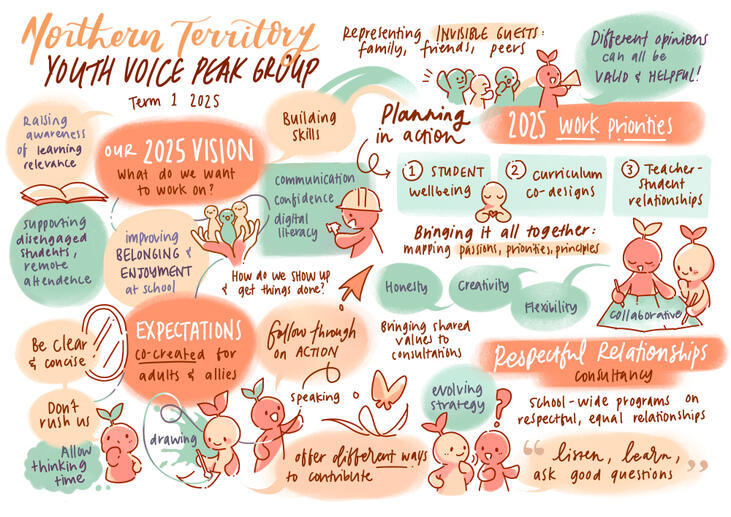 Northern Territory
YOUTH VOICE PEAK GROUP
Term 1 2025
Representing INVISIBLE GUESTS:
family, friends, peers
Different opinions
can all be
VALID & HELPFUL!
Raising
awareness
of learning
relevance
OUR 2025 VISION
What do we want
to work on?
Building
skills
communication
confidence
digital
literacy
supporting
disengaged
students,
remote
attendence
improving
BELONGING &
ENJOYMENT
at school
Planning
in action
2025 work priorities
1 STUDENT
wellbeing
2 Curriculum
co-designs
3 Teacher-
student
relationships
Bringing it all together:
mapping passions, priorities, principles
How do we show up
& get things done?
Honesty
Creativity
Flexibility
collaborative
Bringing shared
values to
consultations
EXPECTATIONS
co-created for
adults & allies
Be clear
& concise
Don't
rush us
Allow
thinking
time
follow through
on ACTION
speaking
drawing
offer different ways
to contribute
Respectful Relationships
consultancy
evolving
strategy
?
School-wide programs on
respectful, equal relationships
“listen, learn,
ask good questions”